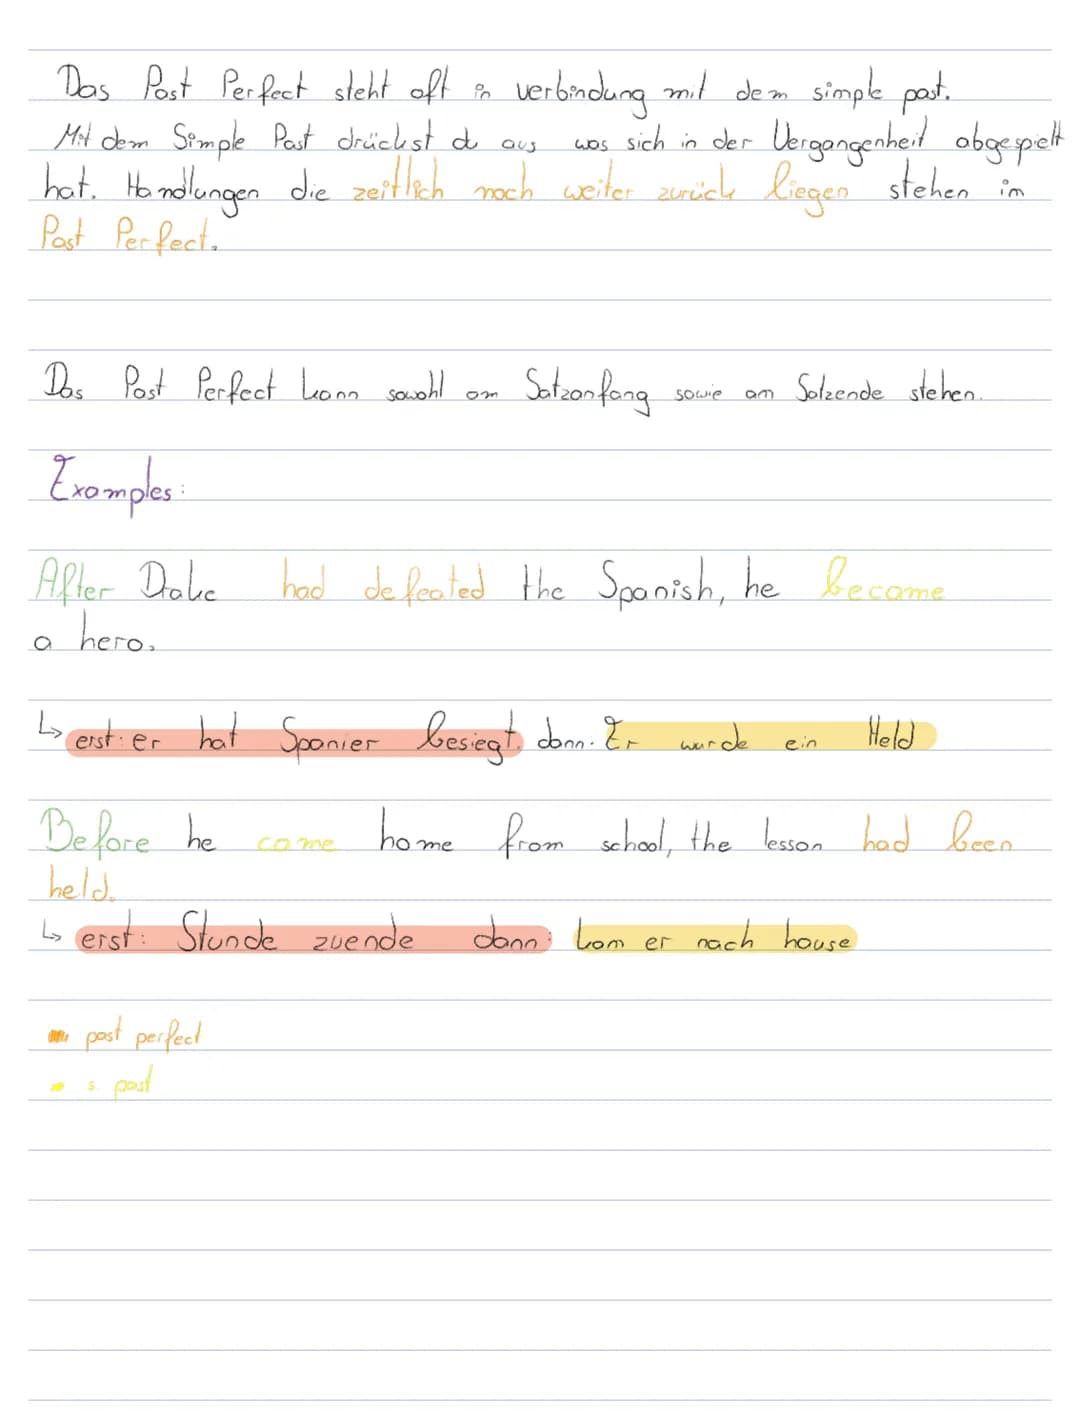 Das Past Perfect steht oft in verbindung mit dem simple past.
Mit dem Simple Past drückst du aus was sich in der Vergangenheit abgespielt
hat. Handlungen die zeitlich noch weiter zurück liegen stehen im
Past Perfect.
Das Past Perfect kann sowohl am Satzanfang sowie am Satzende stehen.
Examples:
After Drake had defeated the Spanish, he became
a hero.
↳ erst: er hat Spanier besiegt. dann: Er wurde ein Held
Before he came home from school, the lesson had been
held.
↳ erst: Stunde zuende dann: kam er nach hause
past perfect
s. past